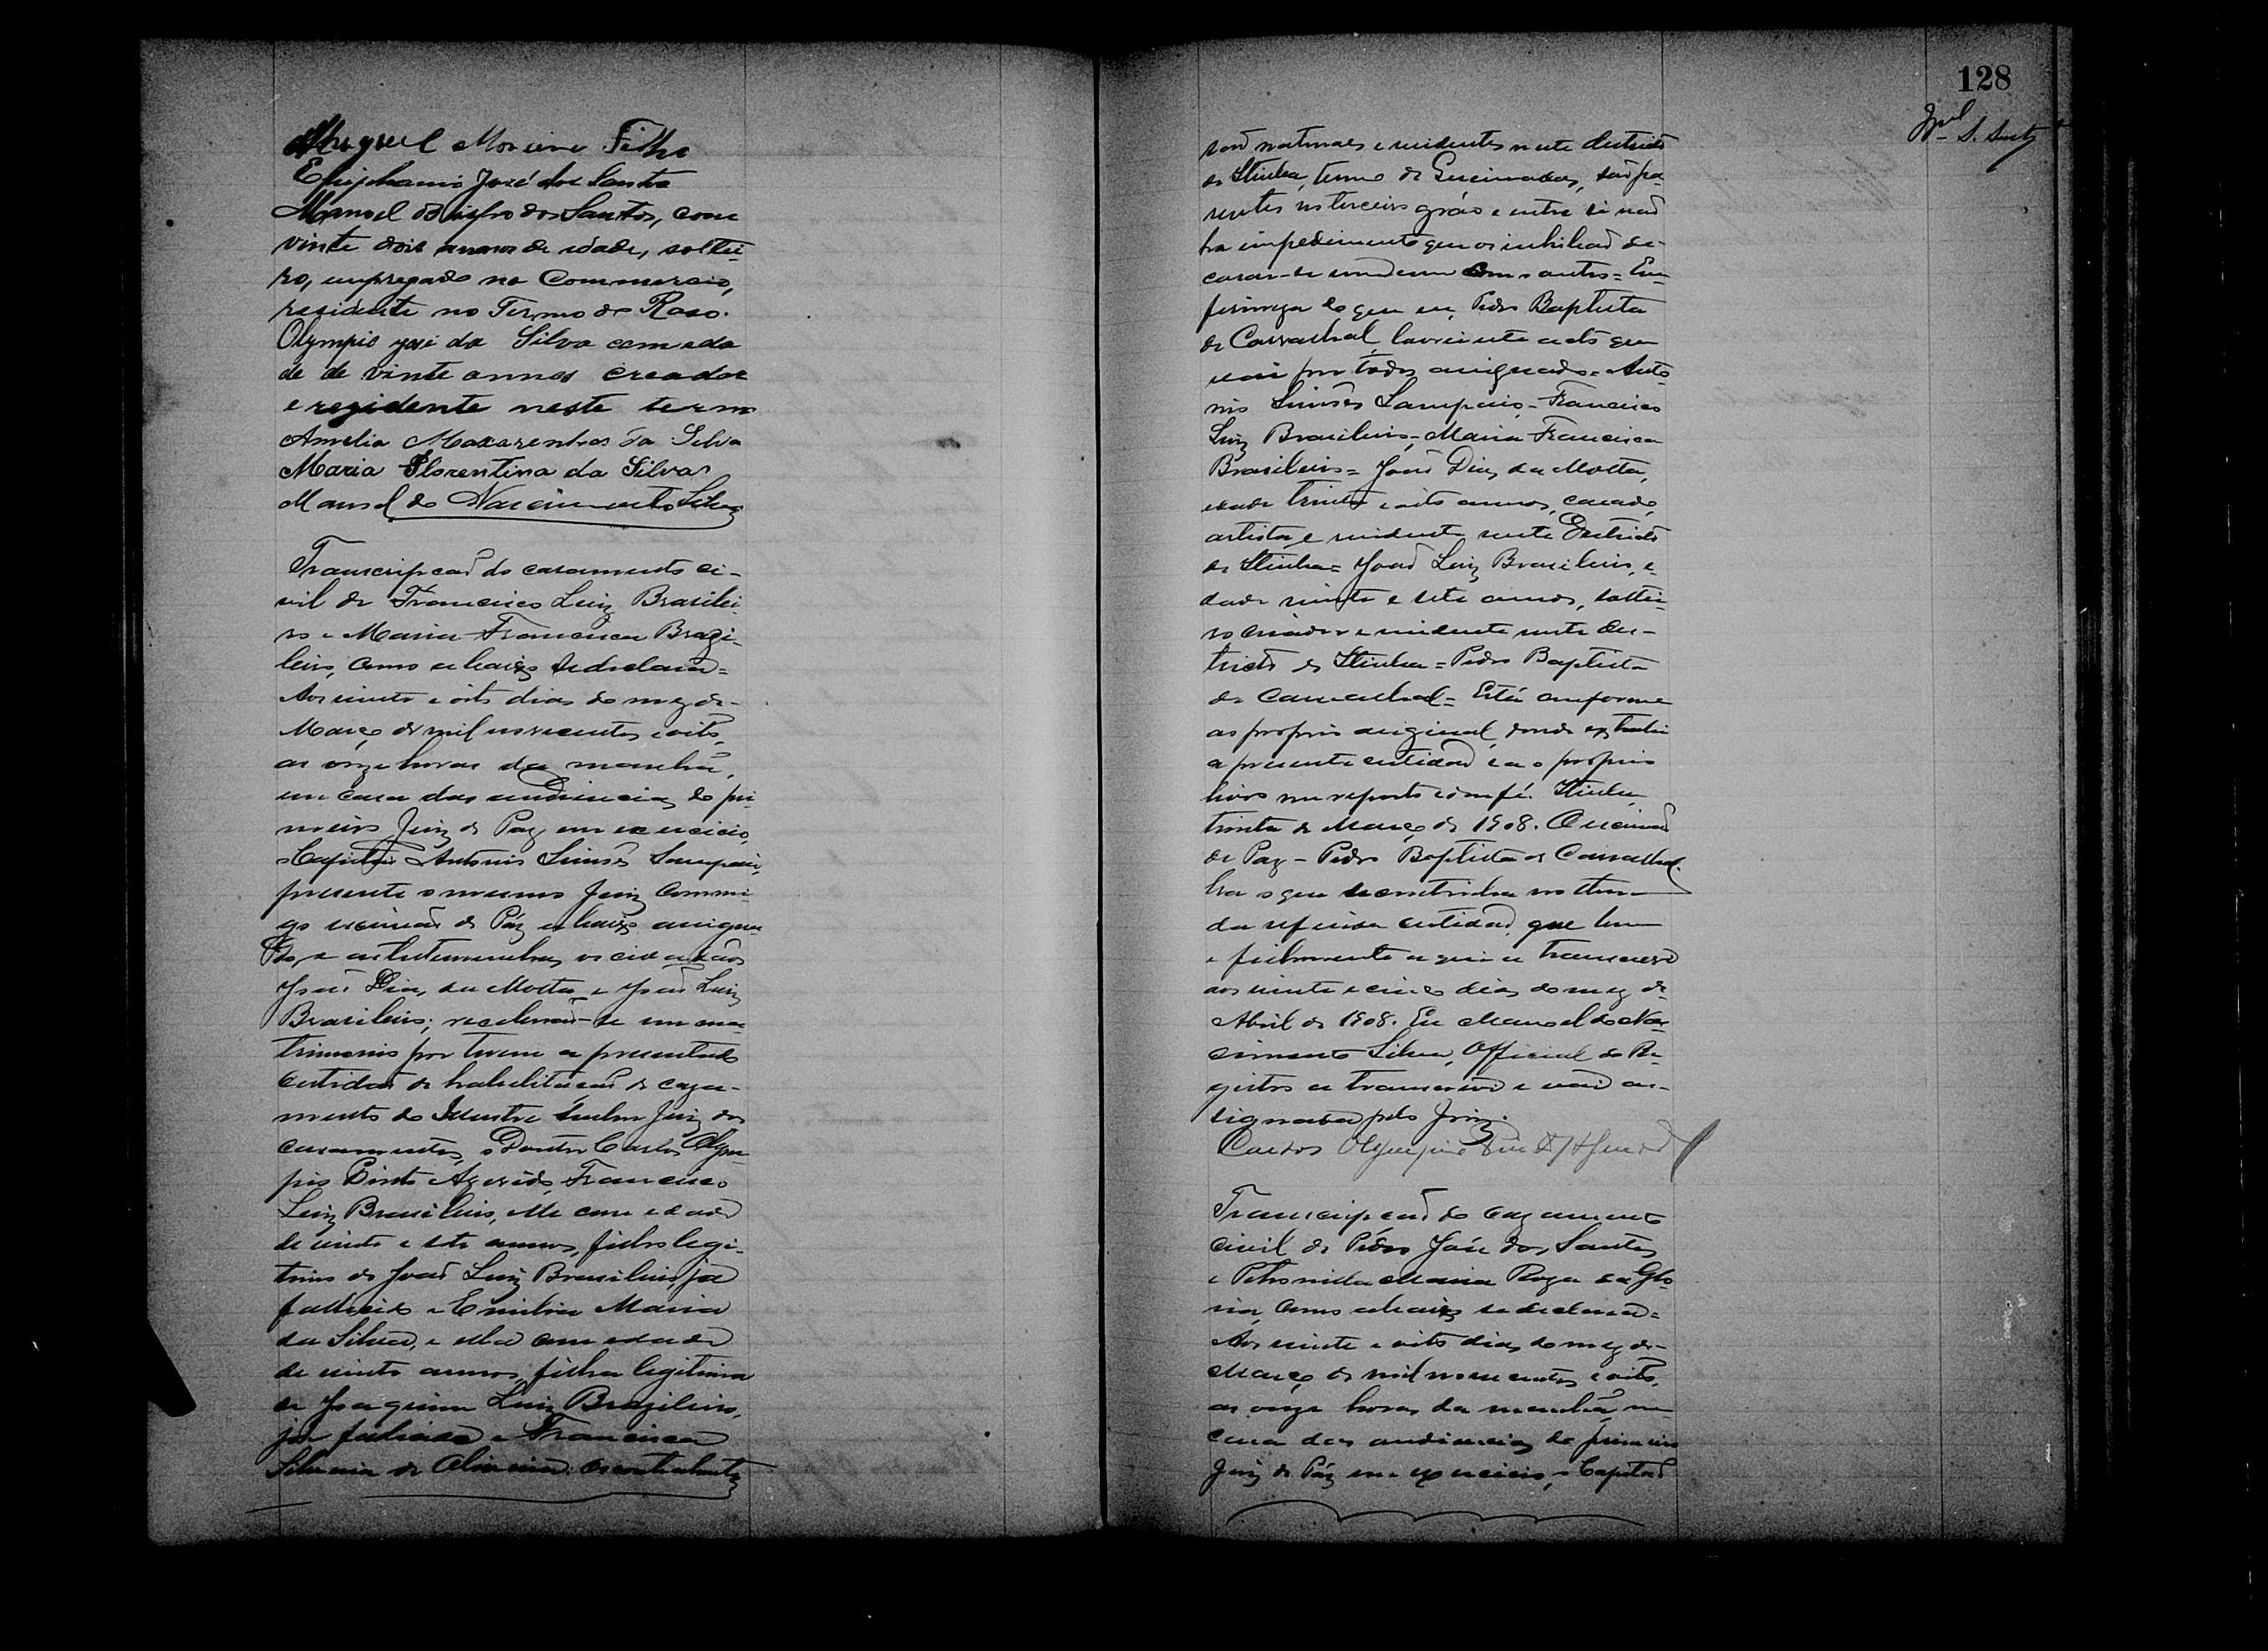 Miguel Moreira Filho
Epiphanio José dos Santos
Manoel dos Santos, com
vinte dois annos de idade, soltei-
ro, empregado no Commercio,
residente no Termo do Raso.
Olympio José da Silva com eda
de de vinte annos creador
e rezidente neste termo
Amelia Maxarenhas da Silva
Maria Florentina da Silva
Manoel do Nascimento Silva
Transcripção do casamento ci-
vil de Francisco Luiz Brasilei-
ro e Maria Francisca Brazi-
leiro, como abaixo se declara=
Aos vinte e oito dias do mez de
Março de mil novecentos e oito,
as onze horas da manhã,
em casa das audiencias do pri-
meiro Juiz de Paz em exercicio,
o Capitão Antonio Simões Sampaio,
presente o mesmo Juiz commi-
go escrivão de Páz abaixo assigna-
do, e as testemunhas os cidadãos
João Dias da Motta e João Luiz
Brasileiro; receberão-se em ma-
trimonio por terem apresentado
certidão de habilitação de caza-
mento do Illustre Senhor Juiz dos
casamentos, o Doutor Carlos Olym-
pio Pinto Azevedo, Francisco
Luiz Brasileiro, elle com edade
de vinte e sete annos, filho legi-
timo de João Luiz Brasileiro, já
fallecido e Emilia Maria
da Silva, e ella com edade
de vinte annos, filha legitima
de Joaquim Luiz Brazileiro,
já fallecido e Francisca
de Oliveira. Os contrahentes
128
são naturaes e residentes neste districto
de Itiuba, termo de Queimadas, são pa-
rentes no terceiro gráo e entre si não
ha impedimento que os inhibão de
casar-se um com o outro= Em
firmeza do que eu, Pedro Baptista
de Carvalhal, lavrei este acto que
vai por todos assignado= Anto-
nio Simões Sampaio= Francisco
Luiz Brasileiro= Maria Francisca
Brasileiro= João Dias da Motta,
edade trinta e oito annos, casado,
artista, e residente neste Districto
de Itiuba= João Luiz Brasileiro, e-
dade vinte e sete annos, soltei-
ro creador e residente neste dis-
tricto de Itiuba= Pedro Baptista
de Carvalhal= Está conforme
ao proprio original, donde extrahi
a presente certidão e ao proprio
livro me reporto e dou fé. Itiuba,
trinta de Março de 1908. O escrivão
de Paz- Pedro Baptista de Carvalhal.
Era o que se continha no theor
da referida certidão, que bem
e fielmente aqui a transcrevo
aos vinte e cinco dias do mez de
Abril de 1908. Eu Manoel do Nas-
cimento Silva, Official do Re-
gistro a transcrevi e vai as-
signada pelo Juiz.
Carlos Olympio Pinto
Transcripção do cazamento
civil de Pedro José dos Santos
e Petronilla Maria Roza da Glo-
ria, como abaixo se declara=
Aos vinte e oito dias do mez de
Março de mil novecentos e oito,
as onze horas da manhã, na
casa das audiencias do primeiro
Juiz de Páz em exercicio, o Capitão